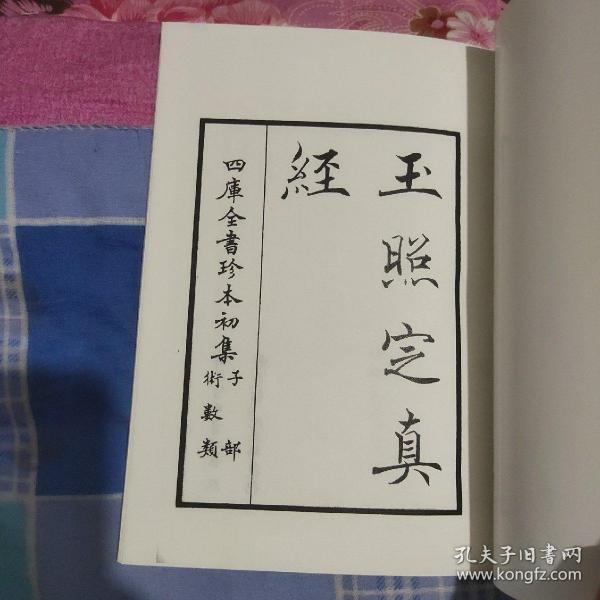 玉照定真
經
四庫全書珍本初集
子部
術數類
孔夫子旧書网
www.kongfz.com